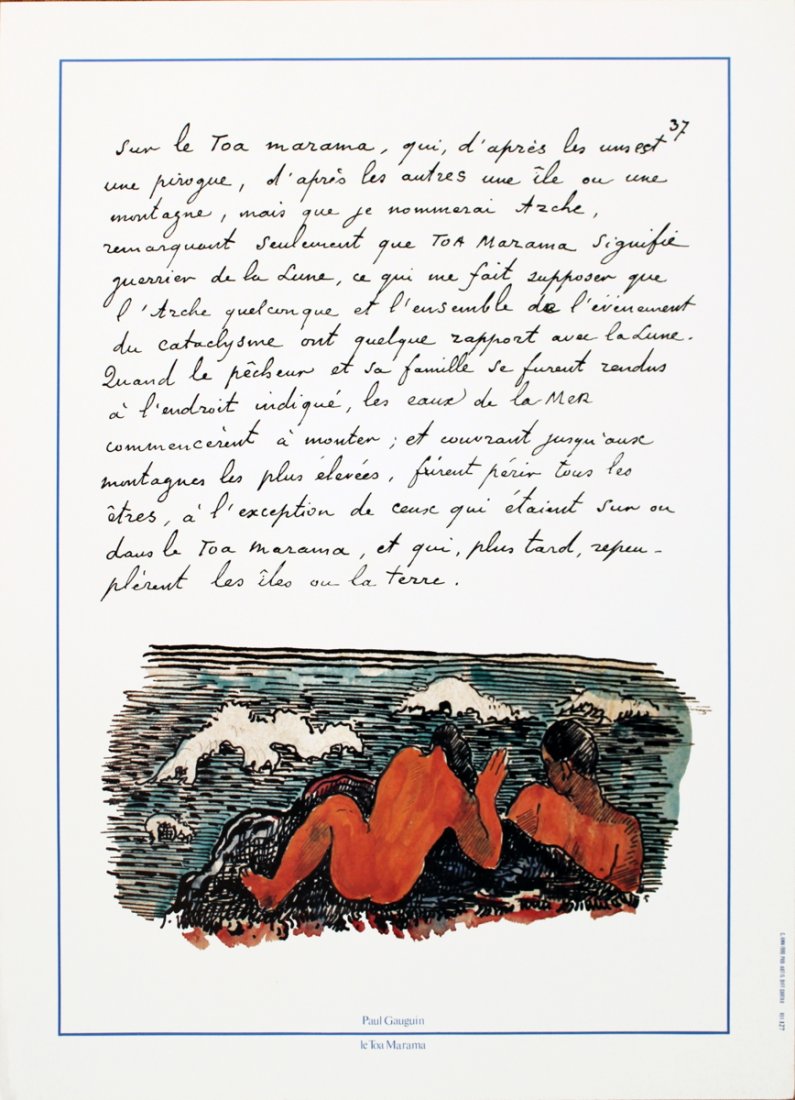 37
Sur le Toa marama, qui, d'après les uns est
une pirogue, d'après les autres une île ou une
montagne, mais que je nommerai Arche,
remarquant seulement que TOA Marama signifie
guerrier de la Lune, ce qui me fait supposer que
l'Arche quelconque et l'ensemble de l'événement
du cataclysme ont quelque rapport avec la Lune.
Quand le pêcheur et sa famille se furent rendus
à l'endroit indiqué, les eaux de la MER
commencèrent à monter ; et couvrant jusqu'aux
montagnes les plus élevées, firent périr tous les
êtres, à l'exception de ceux qui étaient sur ou
dans le Toa marama, et qui, plus tard, repeu-
plérent les îles ou la terre.
Paul Gauguin
le Toa Marama